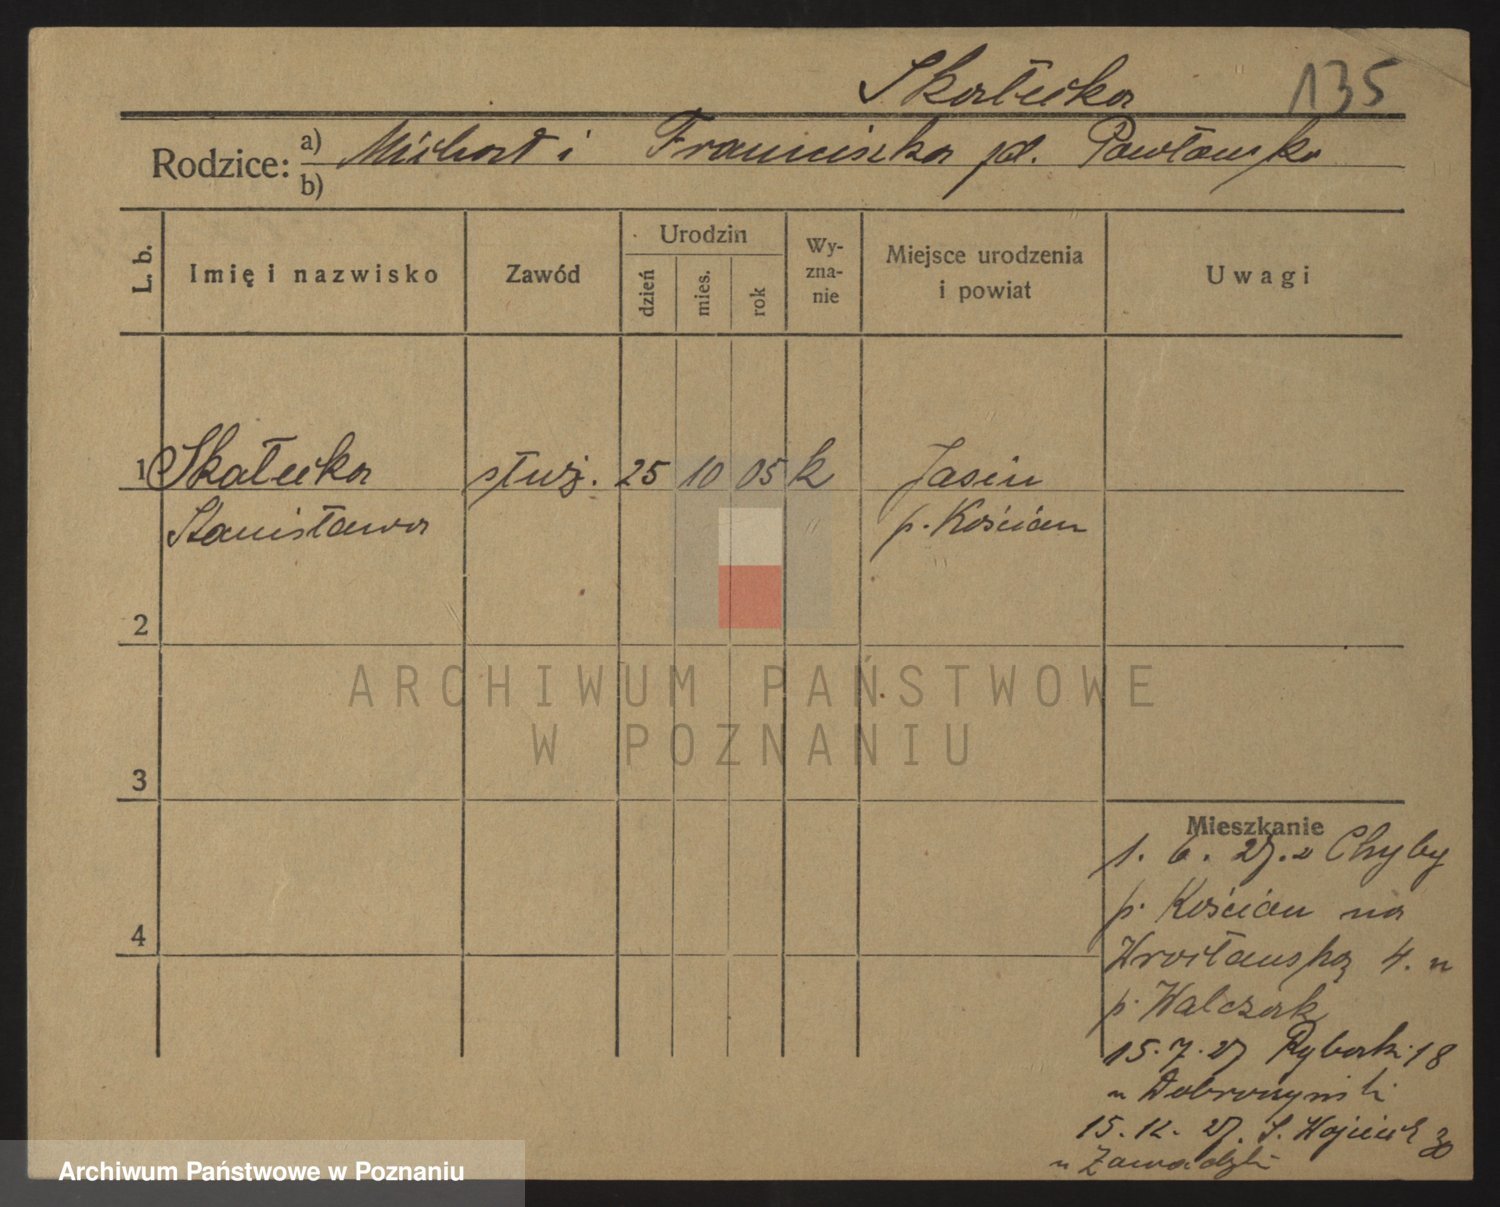 Skałecka 135
Rodzice: a) Michał i Franciszka pd. Pawłowska
b)
L. b. Imię i nazwisko Zawód Urodzin dzień mies. rok Wy-zna-nie Miejsce urodzenia i powiat Uwagi
1 Skałecka służ. 25 10 05 k Jasin
Stanisława p. Kościan
2
3
4
Mieszkanie
1. 6. 27. z Chyby
p. Kościan na
Wrocławską 4. u
p. Walczak
15. 7. 27 Rybaki 18
u
15. 12. 27. Ś. Wojciech 30
u Zawadzki
ARCHIWUM PAŃSTWOWE
W POZNANIU
Archiwum Państwowe w Poznaniu